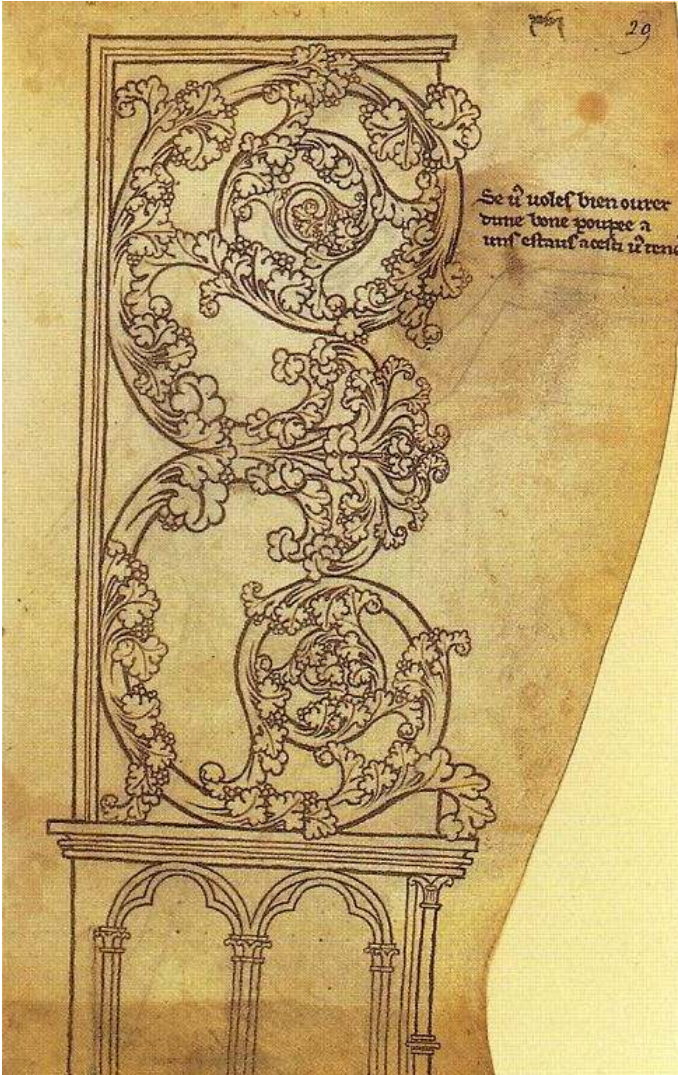 29
Se ů uoleſ bien ourer
dune bone poupee a
unſ eſtauſ a ceſti ů tene